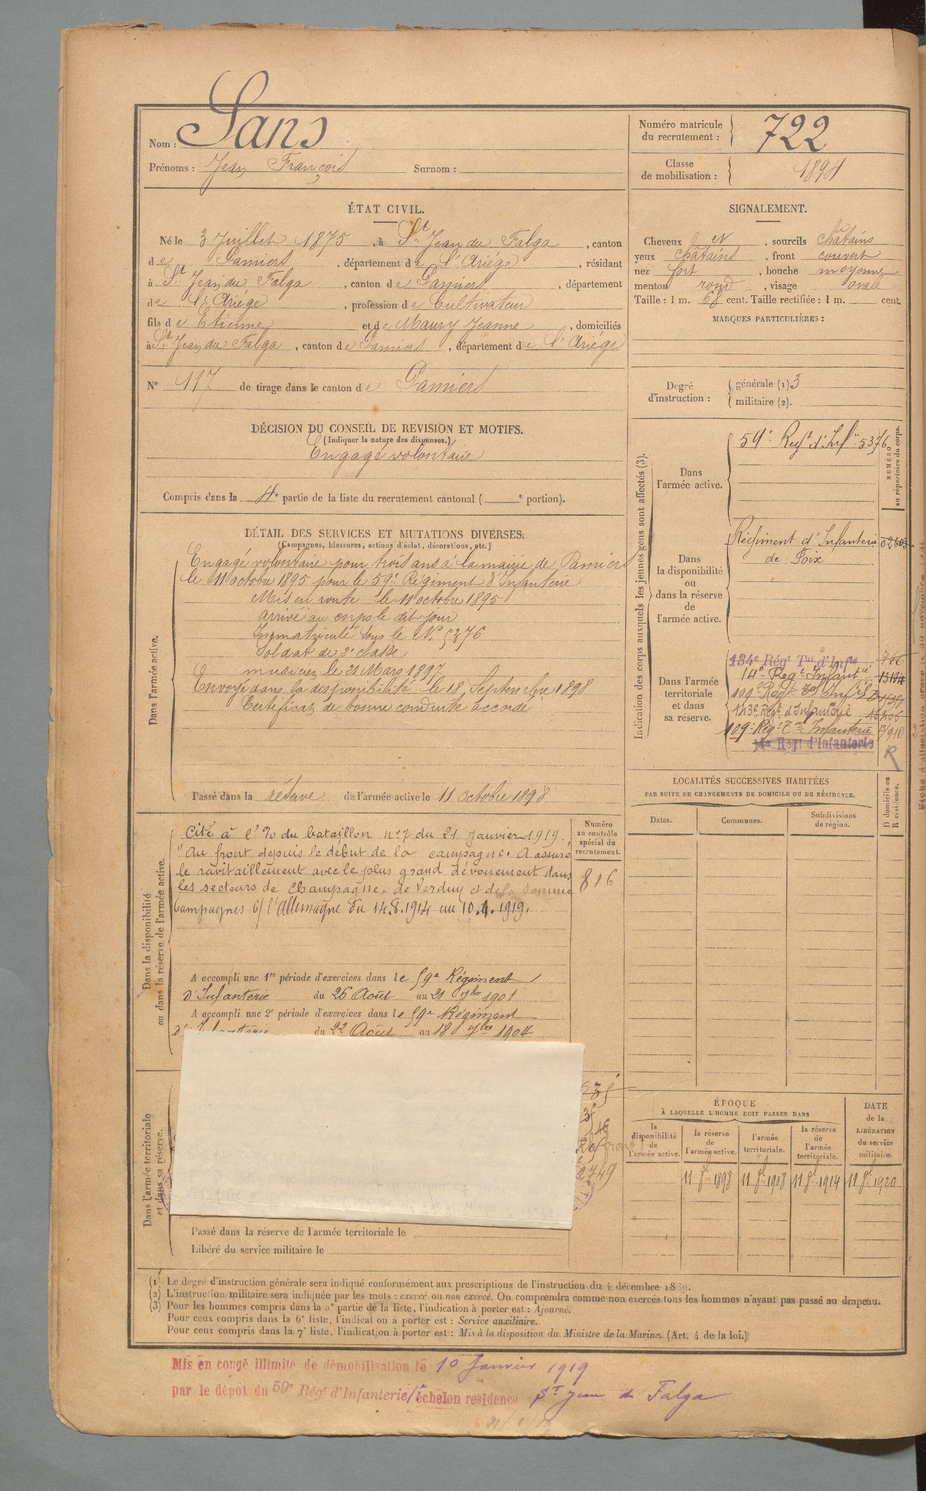 Nom : Sans
Prénoms : Jean François Surnom :
Numéro matricule du recrutement : 722
Classe de mobilisation : 1894
ÉTAT CIVIL.
Né le 3 Juillet 1875, à St Jean du Falga, canton
de Pamiers, département de l'Ariège, résidant
à St Jean du Falga, canton de Pamiers, département
de l'Ariège, profession de Cultivateur
fils de Etienne et de Maury Jeanne, domiciliés
à St Jean du Falga, canton de Pamiers, département de l'Ariège
N° 117 de tirage dans le canton de Pamiers
SIGNALEMENT.
Cheveux et sourcils châtains
yeux châtains, front couvert
nez fort, bouche moyenne
menton rond, visage ovale
Taille : 1 m. 68 cent. Taille rectifiée : 1 m. cent.
MARQUES PARTICULIÈRES :
Degré d'instruction : générale (1) 3
militaire (2).
DÉCISION DU CONSEIL DE REVISION ET MOTIFS.
(Indiquer la nature des dispenses.)
Engagé volontaire
Compris dans la 4e partie de la liste du recrutement cantonal ( e portion).
DÉTAIL DES SERVICES ET MUTATIONS DIVERSES.
(Campagnes, blessures, actions d'éclat, décorations, etc.)
Dans l'armée active.
Engagé volontaire pour trois ans à la mairie de Pamiers
le 11 octobre 1895 pour le 59e Régiment d'Infanterie
Mis en route le 11 octobre 1895
arrivé au corps le dit jour
Immatriculé sous le N° 5376
Soldat de 2e classe
musicien le 21 Mars 1897
Envoyé dans la disponibilité le 18 Septembre 1898
Certificat de bonne conduite accordé
Passé dans la réserve de l'armée active le 11 octobre 1898
Dans la disponibilité ou dans la réserve de l'armée active.
Cité à l'% du bataillon n°7 du 21 Janvier 1919.
"Au front depuis le début de la campagne. A assuré
le ravitaillement avec le plus grand dévouement dans
les secteurs de Champagne, de Verdun et de la Somme
Campagnes c/ l'Allemagne du 14.8.1914 au 10.1.1919.
A accompli une 1re période d'exercices dans le 59e Régiment
d'Infanterie du 26 Août au 21 7bre 1901
A accompli une 2e période d'exercices dans le 59e Régiment
d'Infanterie du 22 Août au 18 7bre 1904
Numéro au contrôle spécial du recrutement.
816
Dans l'armée territoriale et dans sa réserve.
Passé dans la réserve de l'armée territoriale le
Libéré du service militaire le
Indication des corps auxquels les jeunes gens sont affectés (3).
Dans l'armée active.
59e Regt d'Infie 5376
NUMÉRO au répertoire du corps.
Dans la disponibilité ou dans la réserve de l'armée active.
Régiment d'Infanterie
de Foix
Dans l'armée territoriale et dans sa réserve.
134e Régt Tal d'Infie
14e Regt Infanie
109e Regt
143e Regt d'Infanterie
109e Regt Tal Infanterie
Regt d'Infanterie
R
LOCALITÉS SUCCESSIVES HABITÉES
PAR SUITE DE CHANGEMENTS DE DOMICILE OU DE RÉSIDENCE.
Dates. Communes. Subdivisions de région. D domicile ou R résidence.
ÉPOQUE
À LAQUELLE L'HOMME DOIT PASSER DANS
la disponibilité de l'armée active. la réserve de l'armée active. l'armée territoriale. la réserve de l'armée territoriale.
DATE de la LIBÉRATION du service militaire.
11 8bre 1898 11 8bre 1908 11 8bre 1914 11 8bre 1920
(1) Le degré d'instruction générale sera indiqué conformément aux prescriptions de l'instruction du 4 décembre 18
(2) L'instruction militaire sera indiquée par les mots : exercé ou non exercé. On comprendra comme non exercés tous les hommes n'ayant pas passé au drapeau.
(3) Pour les hommes compris dans la 5e partie de la liste, l'indication à porter est : Ajourné.
Pour ceux compris dans la 6e liste, l'indication à porter est : Service auxiliaire.
Pour ceux compris dans la 7e liste, l'indication à porter est : Mis à la disposition du Ministre de la Marine. (Art. 4 de la loi.)
Mis en congé illimité de démobilisation le 10 Janvier 1919
par le dépôt du 59e Régt d'Infanterie échelon residence St Jean de Falga